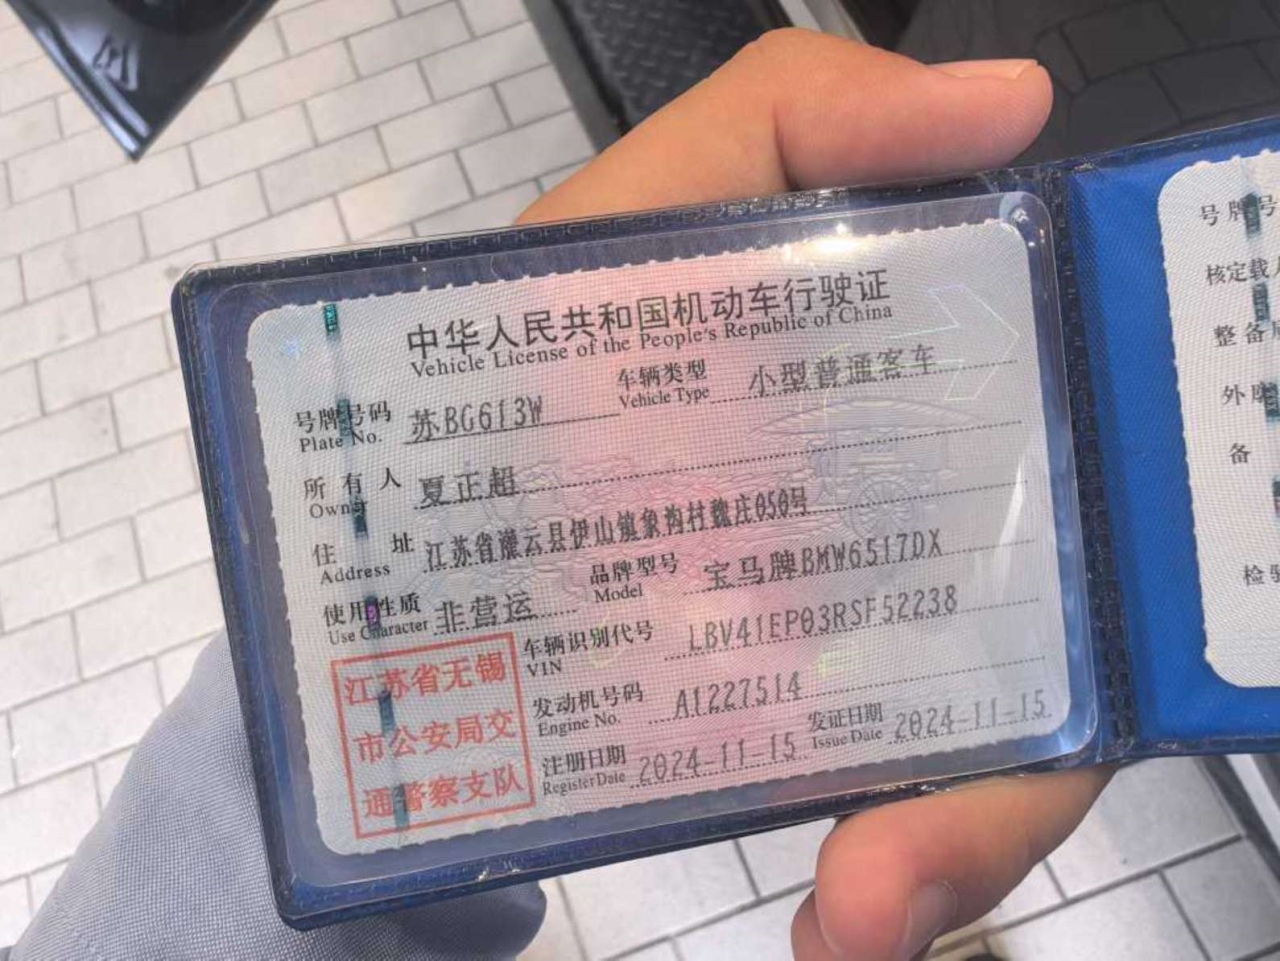 中华人民共和国机动车行驶证
Vehicle License of the People's Republic of China
号牌号码 苏BG613W 车辆类型 小型普通客车
Plate No. Vehicle Type
所有人 夏正超
Owner
住址 江苏省灌云县伊山镇象沟村魏庄050号
Address
使用性质 非营运 品牌型号 宝马牌BMW6517DX
Use Character Model
车辆识别代号 LBV41EP03RSF52238
VIN
发动机号码 A1227514
Engine No.
注册日期 2024-11-15 发证日期 2024-11-15
Register Date Issue Date
江苏省无锡
市公安局交
通警察支队
号牌号
核定载
整备
外
备
检验